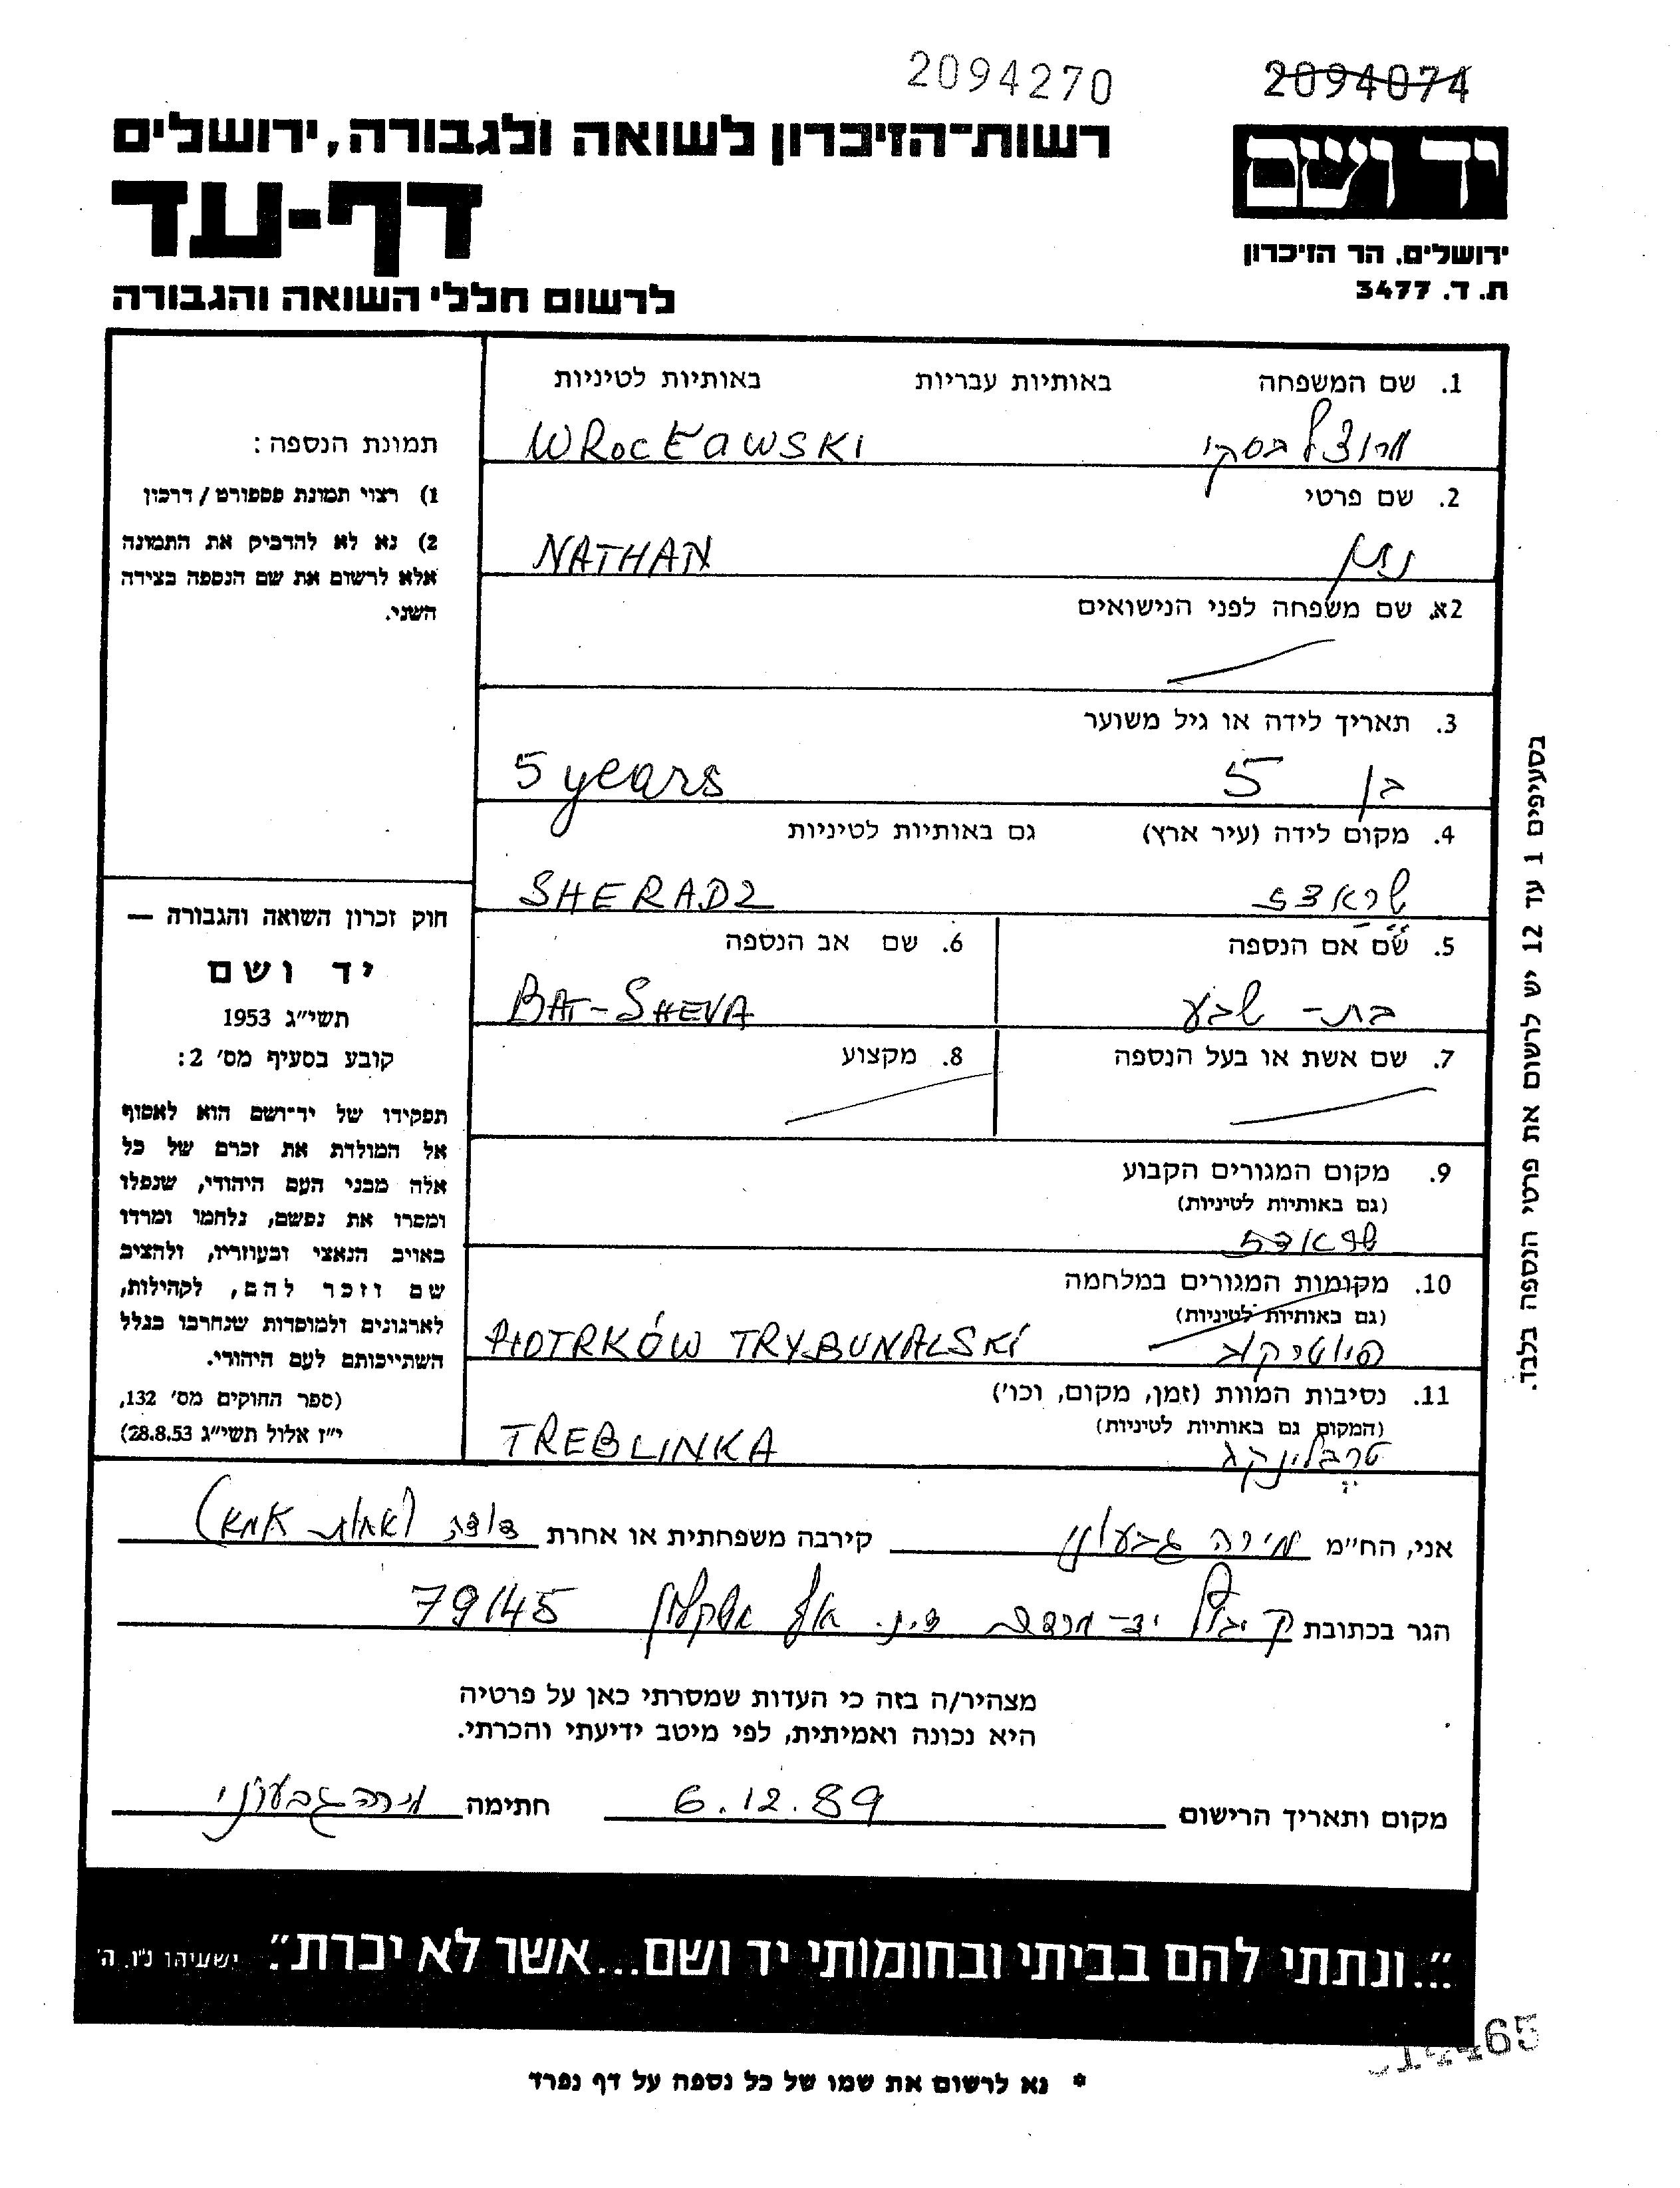 2094270
2094074
רשות־הזיכרון לשואה ולגבורה, ירושלים
דף-עד
לרשום חללי השואה והגבורה
יד ושם
ירושלים, הר הזיכרון
ת. ד. 3477
תמונת הנספה:
1) רצוי תמונת פספורט / דרכון
2) נא לא להדביק את התמונה
אלא לרשום את שם הנספה בצידה
השני.
חוק זכרון השואה והגבורה —
יד ושם
תשי״ג 1953
קובע בסעיף מס׳ 2:
תפקידו של יד־ושם הוא לאסוף
אל המולדת את זכרם של כל
אלה מבני העם היהודי, שנפלו
ומסרו את נפשם, נלחמו ומרדו
באויב הנאצי ובעוזריו, ולהציב
שם וזכר להם, לקהילות,
לארגונים ולמוסדות שנחרבו בגלל
השתייכותם לעם היהודי.
(ספר החוקים מס׳ 132,
י״ז אלול תשי״ג 28.8.53)
1. שם המשפחה באותיות עבריות באותיות לטיניות
ורוצלבסקי WROCŁAWSKI
2. שם פרטי
נתן NATHAN
2א. שם משפחה לפני הנישואים
3. תאריך לידה או גיל משוער
בן 5 5 years
4. מקום לידה (עיר ארץ) גם באותיות לטיניות
שראדז SHERADZ
5. שם אם הנספה 6. שם אב הנספה
בת- שבע BAT-SHEVA
7. שם אשת או בעל הנספה 8. מקצוע
9. מקום המגורים הקבוע
(גם באותיות לטיניות)
שראדז
10. מקומות המגורים במלחמה
(גם באותיות לטיניות)
פיוטרקוב PIOTRKÓW TRYBUNALSKI
11. נסיבות המוות (זמן, מקום, וכו׳)
(המקום גם באותיות לטיניות)
טרבלינקה TREBLINKA
בסעיפים 1 עד 12 יש לרשום את פרטי הנספה בלבד.
אני, הח״מ מירה גבעוני קירבה משפחתית או אחרת דודה (אחות אמא)
הגר בכתובת קיבוץ יד-מרדכי ד.נ. חוף אשקלון 79145
מצהיר/ה בזה כי העדות שמסרתי כאן על פרטיה
היא נכונה ואמיתית, לפי מיטב ידיעתי והכרתי.
מקום ותאריך הרישום 6.12.89 חתימה מירה גבעוני
״...ונתתי להם בביתי ובחומותי יד ושם...אשר לא יכרת״. ישעיהו נ״ו, ה׳
* נא לרשום את שמו של כל נספה על דף נפרד